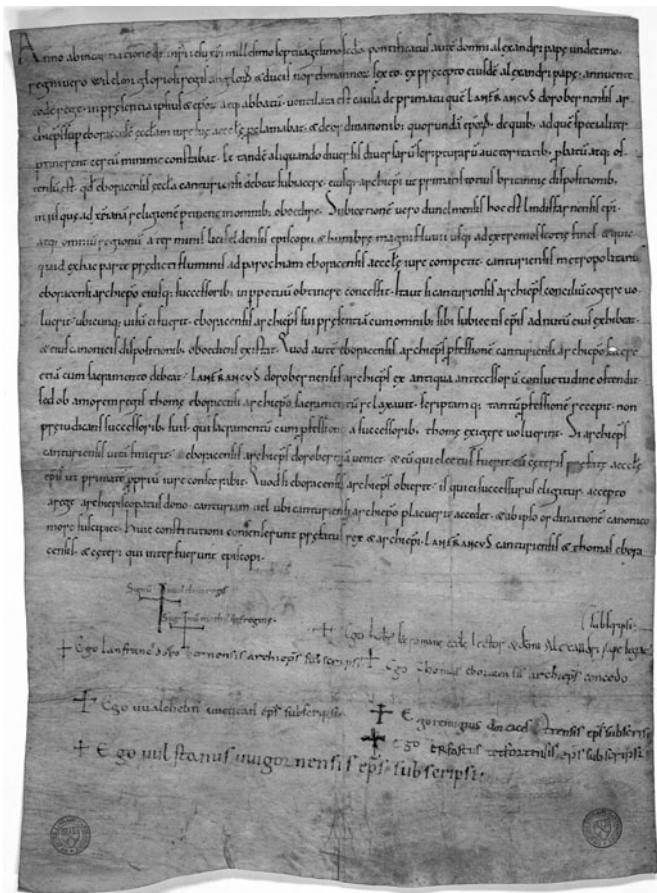 Anno ab incarnatione dn̄i nr̄i ih̄u xp̄i millesimo septuagesimo sc̄do. pontificatus autē domni alexandri papę undecimo.
regni uero Wilelmi gloriosi regis anglorꝫ & ducis northmannorꝫ sexto. ex precepto eiusdē alexandri papę. annuente
eodē rege. in presentia ipsius & ep̄orꝫ atq; abbatū. uentilata est causa de primatu quē LANFRANCVS dorobernensis ar
chiep̄s sup eboracensē ęcclam iure suę ęcclę p̄clamabat. & de ordinationib; quorundā ep̄orꝫ. de quib; ad quē specialiter
pertinerent certū minime constabat. Et tandē aliquando diuersis diuersarū scripturarū auctoritatib; p̄batū atq; os
tensū est. qd̄ eboracensis ęccla cantuariensi debeat subiacere. eiusq; archiep̄i ut primatis totius britannię dispositionib;
in iis quę ad xp̄ianā religionē pertinent in omnib; oboedire. Subiectionē uero dunelmensis hoc est lindisfarnensis ep̄i
atq; omniū regionū a terminis licifeldensis episcopii & humbrę magni fluuii usq; ad extremos scotię fines. & quic
quid ex hac parte prędicti fluminis ad parochiam eboracensis ęcclę iure competit. cantuariensis metropolitanus
eboracensi archiep̄o eiusq; successorib; in ppetuū obtinere concessit. Ita ut si cantuariensis archiep̄s conciliū cogere uo
luerit. ubicunq; uisū ei fuerit. eboracensis archiep̄s sui presentiā cum omnib; sibi subiectis ep̄is ad nutū eius exhibeat.
& eius canonicis dispositionib; oboediens existat. Quod autē eboracensis archiep̄s p̄fessionē cantuariensi archiep̄o facere
etiā cum sacramento debeat. LANFRANCVS dorobernensis archiep̄s ex antiqua antecessorū consuetudine ostendit
sed ob amorem regis thomę eboracensi archiep̄o sacramentū relaxauit. scriptamq; tantū p̄fessionē recepit. non
preiudicans successorib; suis. qui sacramentū cum p̄fessione a successorib; thomę exigere uoluerint. Si archiep̄s
cantuariensis uitā finierit. eboracensis archiep̄s doroberniā ueniet. & eū qui electus fuerit cū cęteris pręfatę ęcclę
ep̄is ut primatē p̄priū iure consecrabit. Quod si eboracensis archiep̄s obierit. is qui ei successurus eligitur. accepto
a rege archiepiscopatus dono. cantuariam uel ubi cantuariensi archiep̄o placuerit accedet. & ab ipso ordinationē canonico
more suscipiet. Huic constitutioni consenserunt pręfatus rex & archiep̄i. LANFRANCVS cantuariensis & thomas ebora
censis. & cęteri qui interfuerunt episcopi.
Signū Wilelmi regis
Signū mathildis reginę.
subscripsi.
+ Ego hub̄t̄ sc̄ę romanę ęcclę lector & domni Alexandri pape legat̄
+ Ego lanfranc̄ dorobernensis archiep̄s subscripsi.
+ Ego thomas eboracensis archiep̄s concedo
+ Ego uualchelin̄ uuentan̄ ep̄s subscripsi.
+ Ego remigius dorcacestrensis ep̄s subscripsi
+ Ego Erfastus tetfortensis ep̄s subscripsi.
+ Ego uulstanus uuigornensis ep̄s subscripsi.